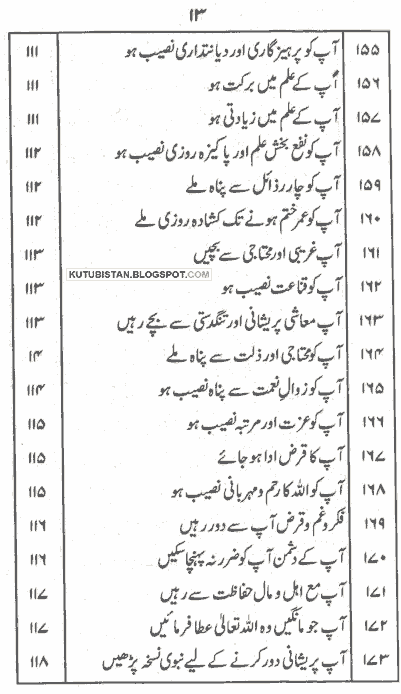 ۱۳
۱۵۵ آپ کو پرہیزگاری اور دیانتداری نصیب ہو ۱۱۱
۱۵۶ آپ کے علم میں برکت ہو ۱۱۱
۱۵۷ آپ کے علم میں زیادتی ہو ۱۱۱
۱۵۸ آپ کو نفع بخش علم اور پاکیزہ روزی نصیب ہو ۱۱۲
۱۵۹ آپ کو چار رذائل سے پناہ ملے ۱۱۲
۱۶۰ آپ کو عمر ختم ہونے تک کشادہ روزی ملے ۱۱۲
۱۶۱ آپ غریبی اور محتاجی سے بچیں ۱۱۳
KUTUBISTAN.BLOGSPOT.COM
۱۶۲ آپ کو قناعت نصیب ہو ۱۱۳
۱۶۳ آپ معاشی پریشانی اور تنگدستی سے بچے رہیں ۱۱۳
۱۶۴ آپ کو محتاجی اور ذلت سے پناہ ملے ۱۴
۱۶۵ آپ کو زوالِ نعمت سے پناہ نصیب ہو ۱۱۴
۱۶۶ آپ کو عزت اور مرتبہ نصیب ہو ۱۱۵
۱۶۷ آپ کا قرض ادا ہو جائے ۱۱۵
۱۶۸ آپ کو اللہ کا رحم و مہربانی نصیب ہو ۱۱۵
۱۶۹ فکر و غم و قرض آپ سے دور رہیں ۱۱۶
۱۷۰ آپ کے دشمن آپ کو ضرر نہ پہنچا سکیں ۱۱۶
۱۷۱ آپ مع اہل و مال حفاظت سے رہیں ۱۱۷
۱۷۲ آپ جو مانگیں وہ اللہ تعالیٰ عطا فرمائیں ۱۱۷
۱۷۳ آپ پریشانی دور کرنے کے لیے نبوی نسخہ پڑھیں ۱۱۸